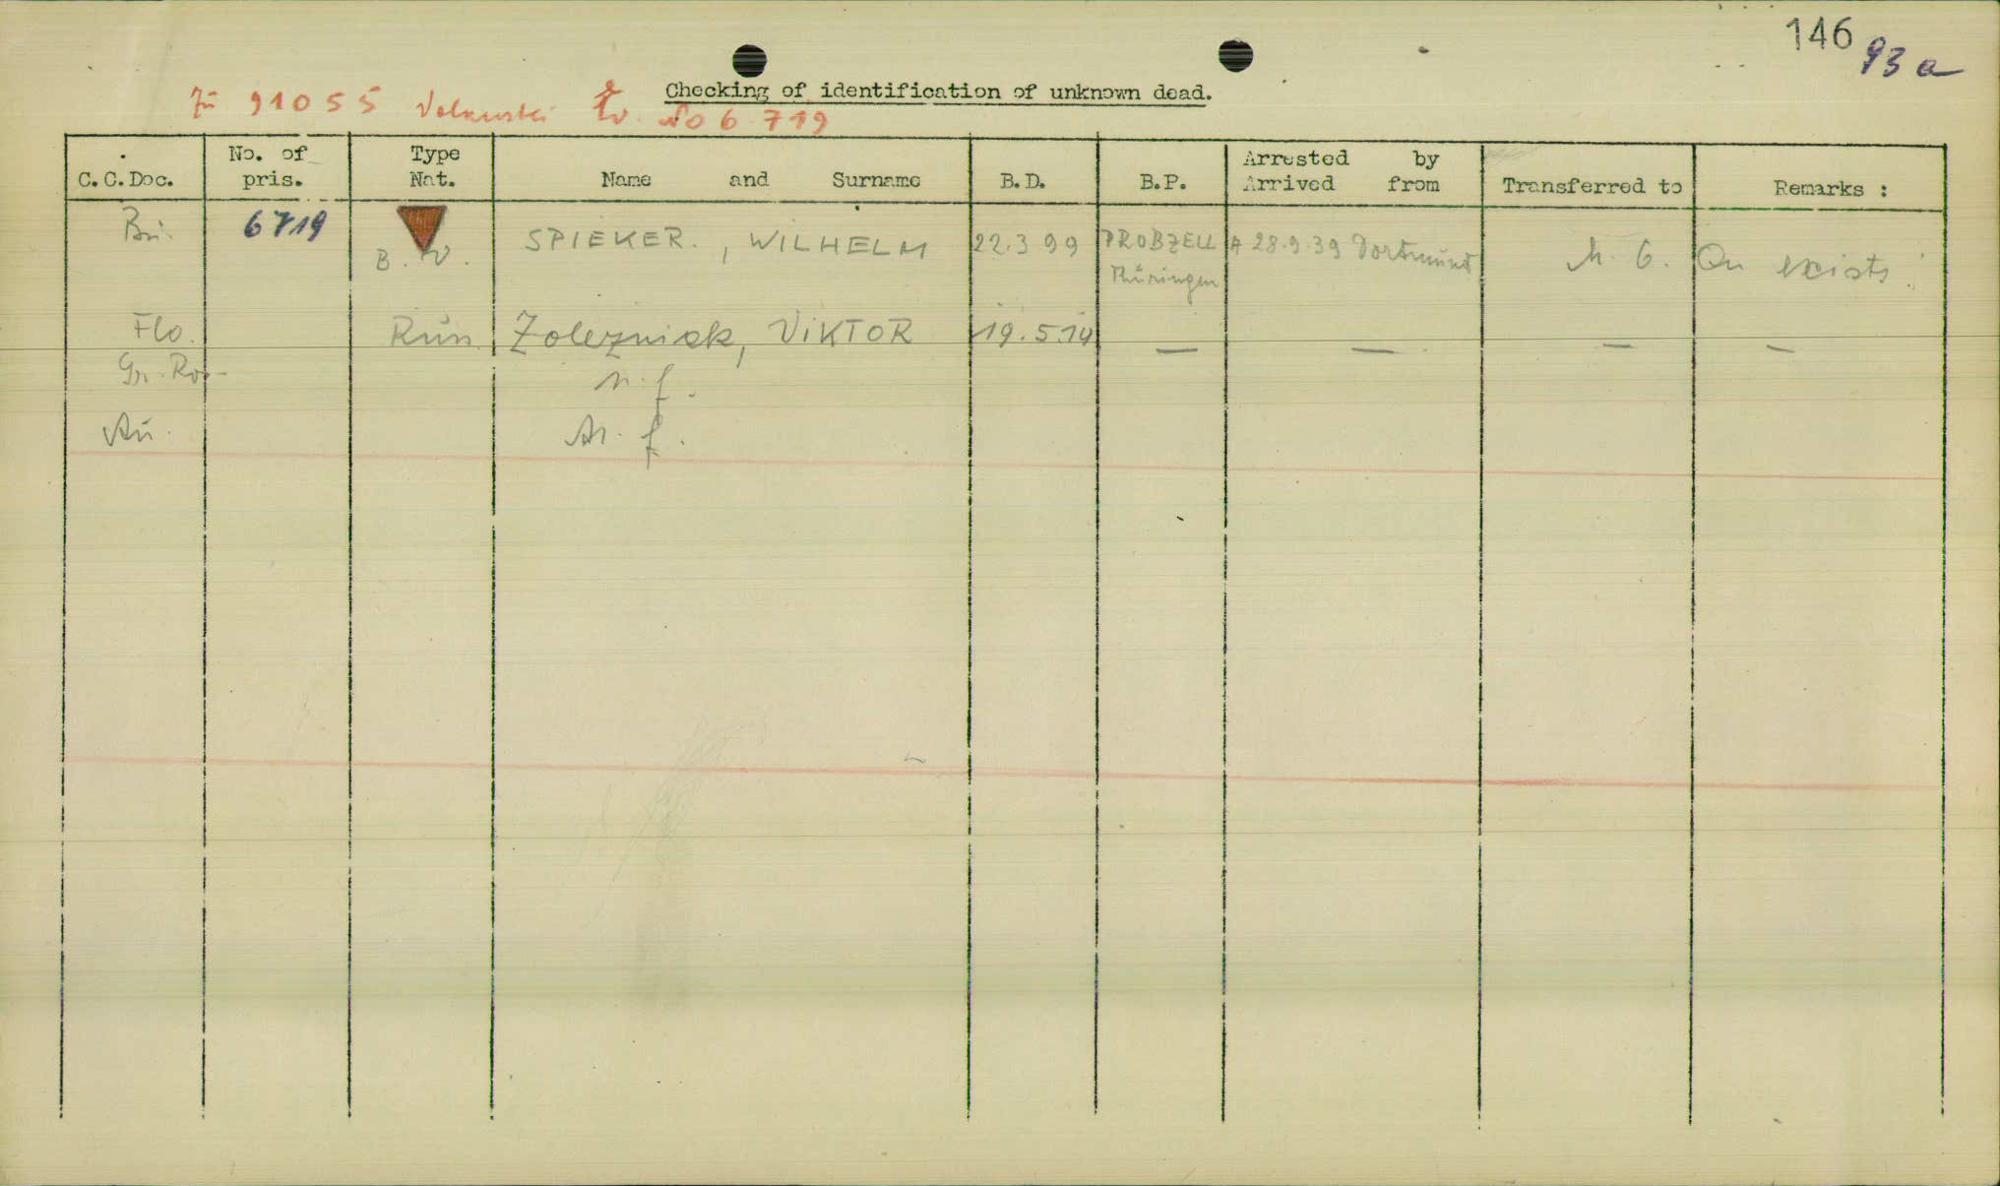 146
93a
Checking of identification of unknown dead.
zu 91055 6719
C.C.Doc. No. of pris. Type Nat. Name and Surname B.D. B.P. Arrested by Arrived from Transferred to Remarks :
Bu. 6719 B.V. SPIEKER., WILHELM 22.3 99 PROBZELL Thüringen A 28.9.39 Dortmund exists
Flo. Zolezniak, VIKTOR 19.5.14 — — — —
Gr. Ros- n.f.
Au. n.f.